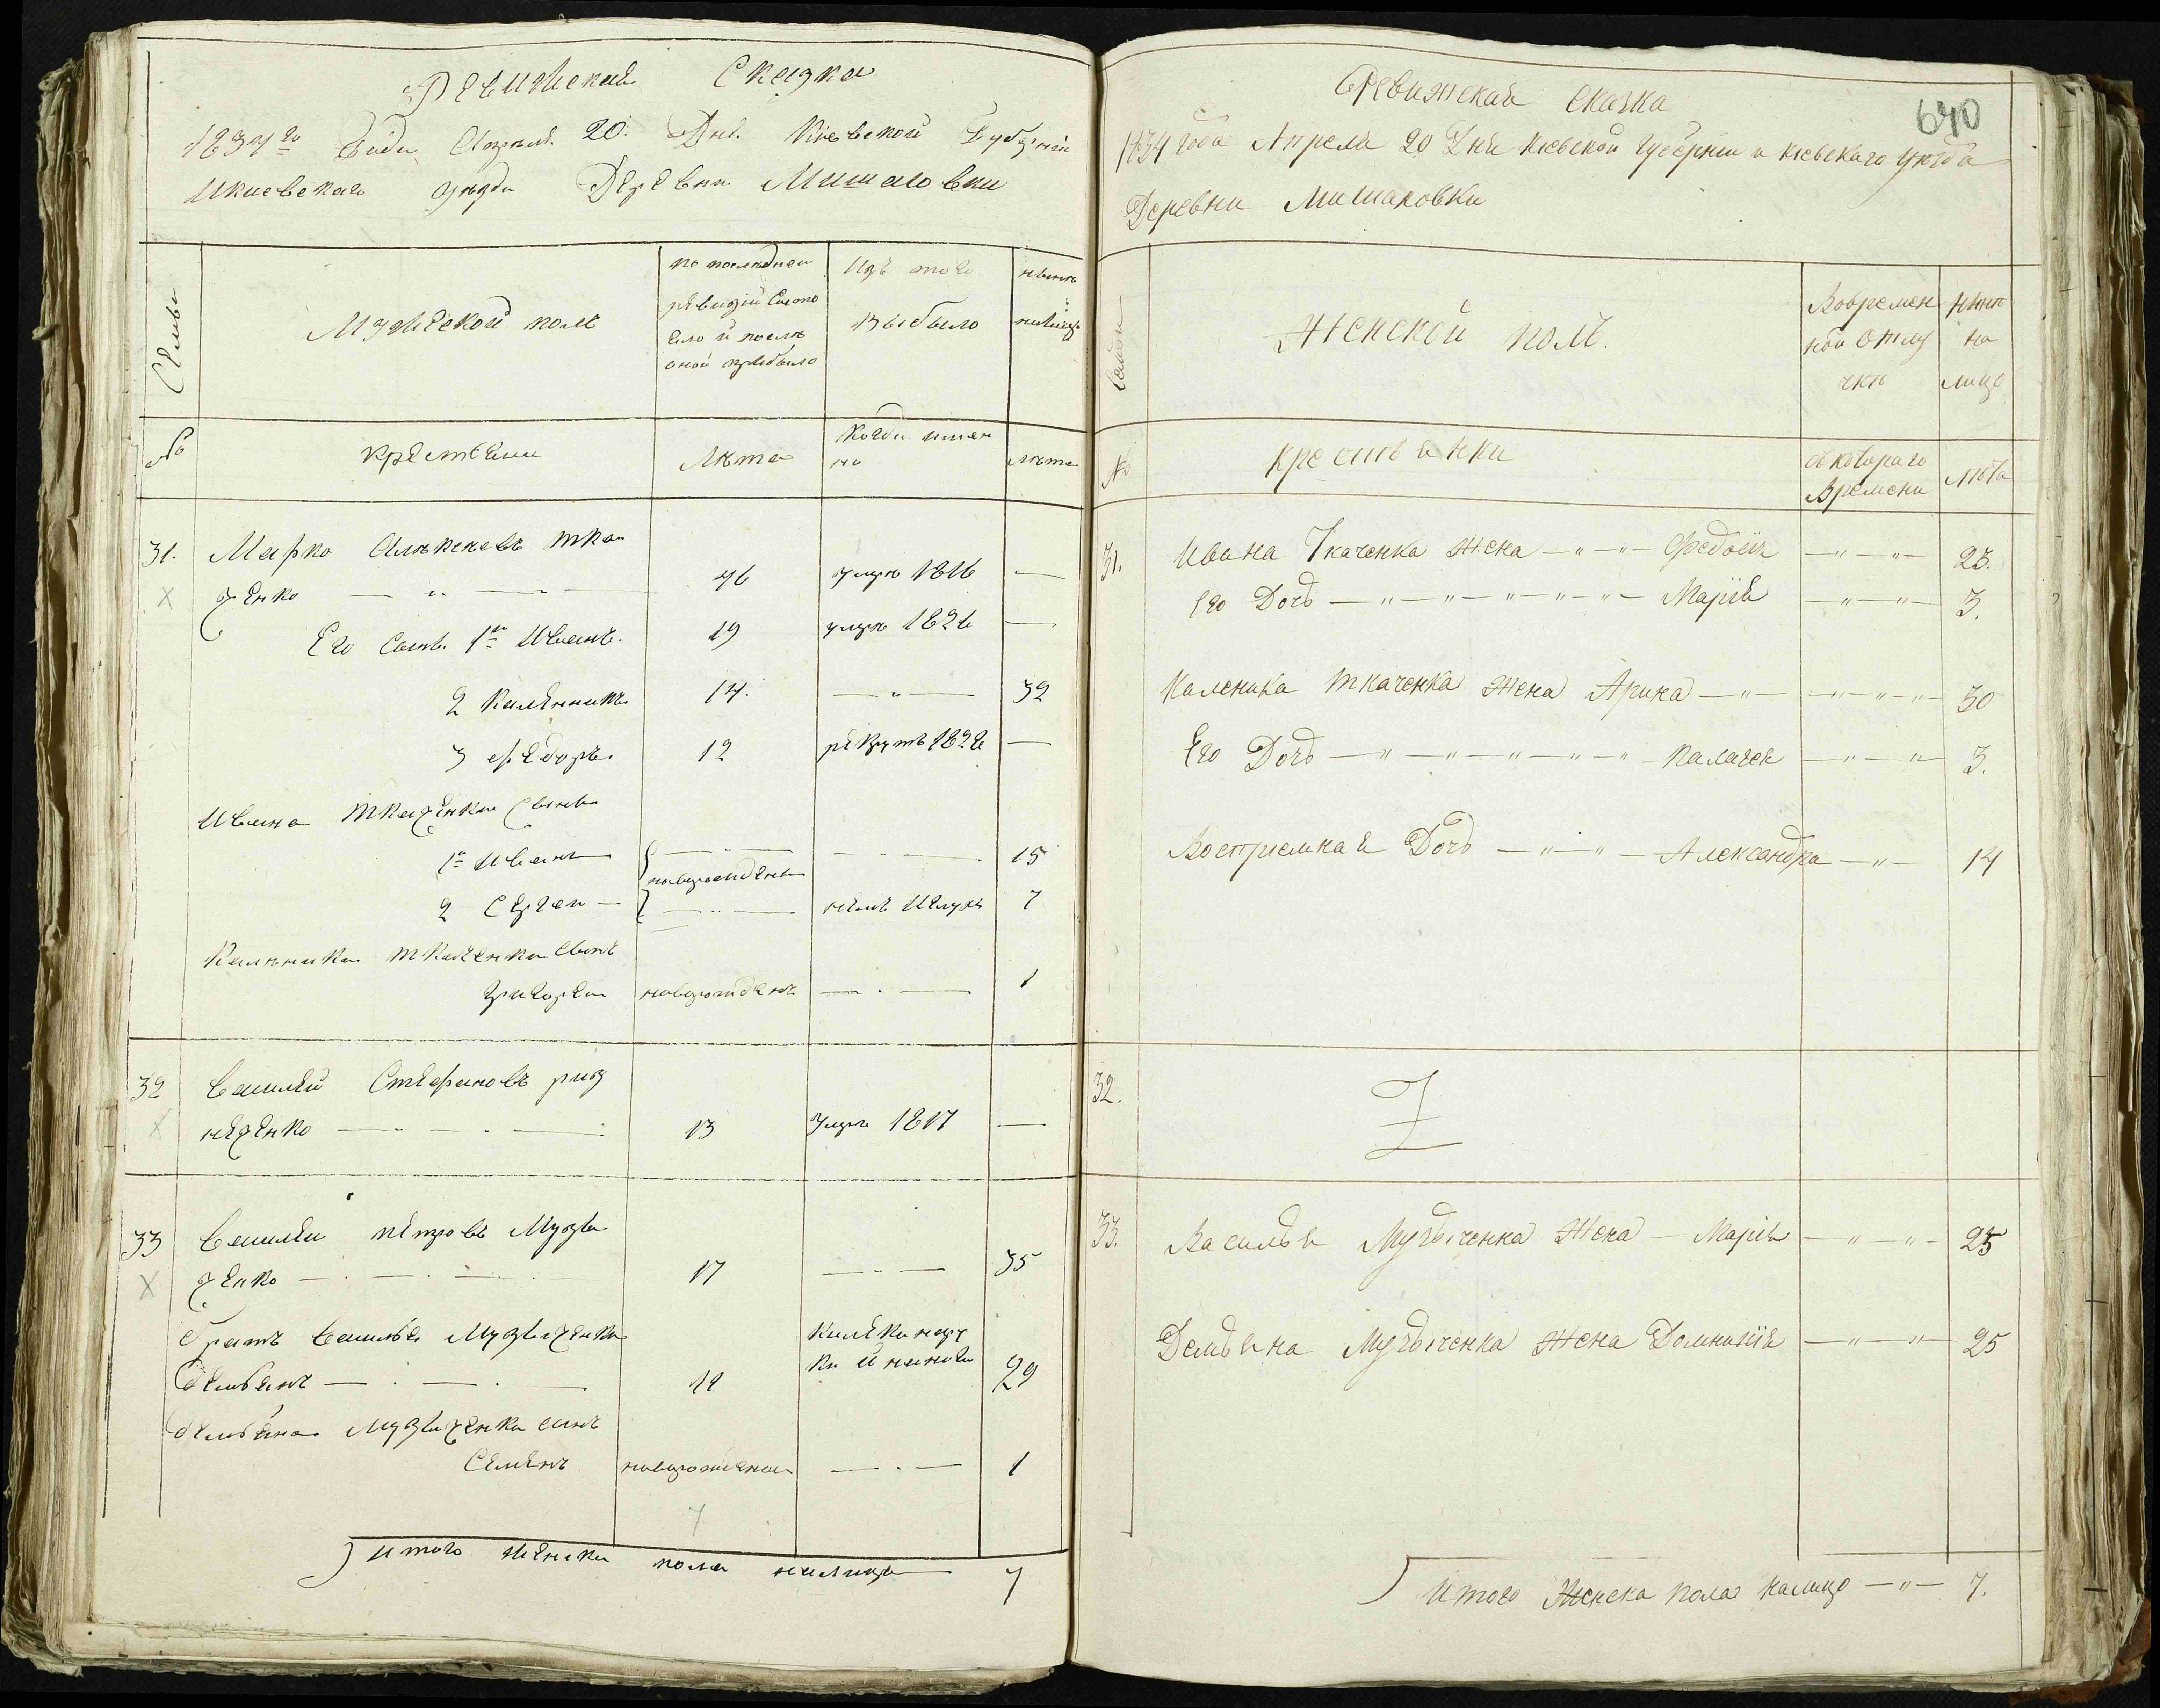 Ревижская Сказка
1834го Года Апреля 20. Дня Киевской Губерніи
И киевскаго уезда Деревни Мишаловки
Семьи
Мужеской полъ
по последней
ревизіи Состо
яло и после
оной прибыло
Изъ того
выбыло
ныне
налицо
№
крестьяни
Лета
Когда имен
но
лета
31. Марко Алексеевъ тка
ченко — „ — 46 умре 1816 —
Его Сынъ 1й Иванъ. 19 умре 1826 —
2 Каленникъ 14. — „ — 32
3 Федоръ 12 рекрутъ 1828 —
Ивана Ткаченка Сыны
1й Иванъ — „ — — „ — 15
новорожденны
2 Сергеи — — „ — 7
Каленика ткаченка Сынъ
Григореи новорожденъ — „ — 1
32 Василей Стефановъ
— „ — 13 Умре 1817 —
33 Василеи петровъ Музы
ченко — „ — 17 — „ — 35
братъ Василья Музыченка
демьянъ — „ — 11 29
Демьяна Музыченка синъ
Семенъ новорожденъ — „ — 1
7
Итого пола налицо — 7
640
Ревижская сказка
1834 года Апреля 20 Дня Киевской Губерніи и киевскаго уезда
Деревни Мишаловки
Семьи
Женской полъ.
Вовремен
ной отлу
чки
ныне
на
лицо
№
крестьянки
С котораго
Времени
Лета
31. Ивана Ткаченка жена — „ — „ — Федосія — „ — „ — 23.
Его Дочь — „ — „ — „ — „ — „ — Марія — „ — „ — 3.
Каленика ткаченка жена Арина — „ — — „ — „ — 30
Его Дочь — „ — „ — „ — „ — „ — Палагея — „ — „ — 3.
Восприемная Дочь — „ — „ — Александра — „ — 14
32.
33. Василья Музыченка жена — Марія — „ — „ — 25
Демьяна Музыченка жена Домникія — „ — „ — 25
Итого Женска пола налицо — „ — 7.